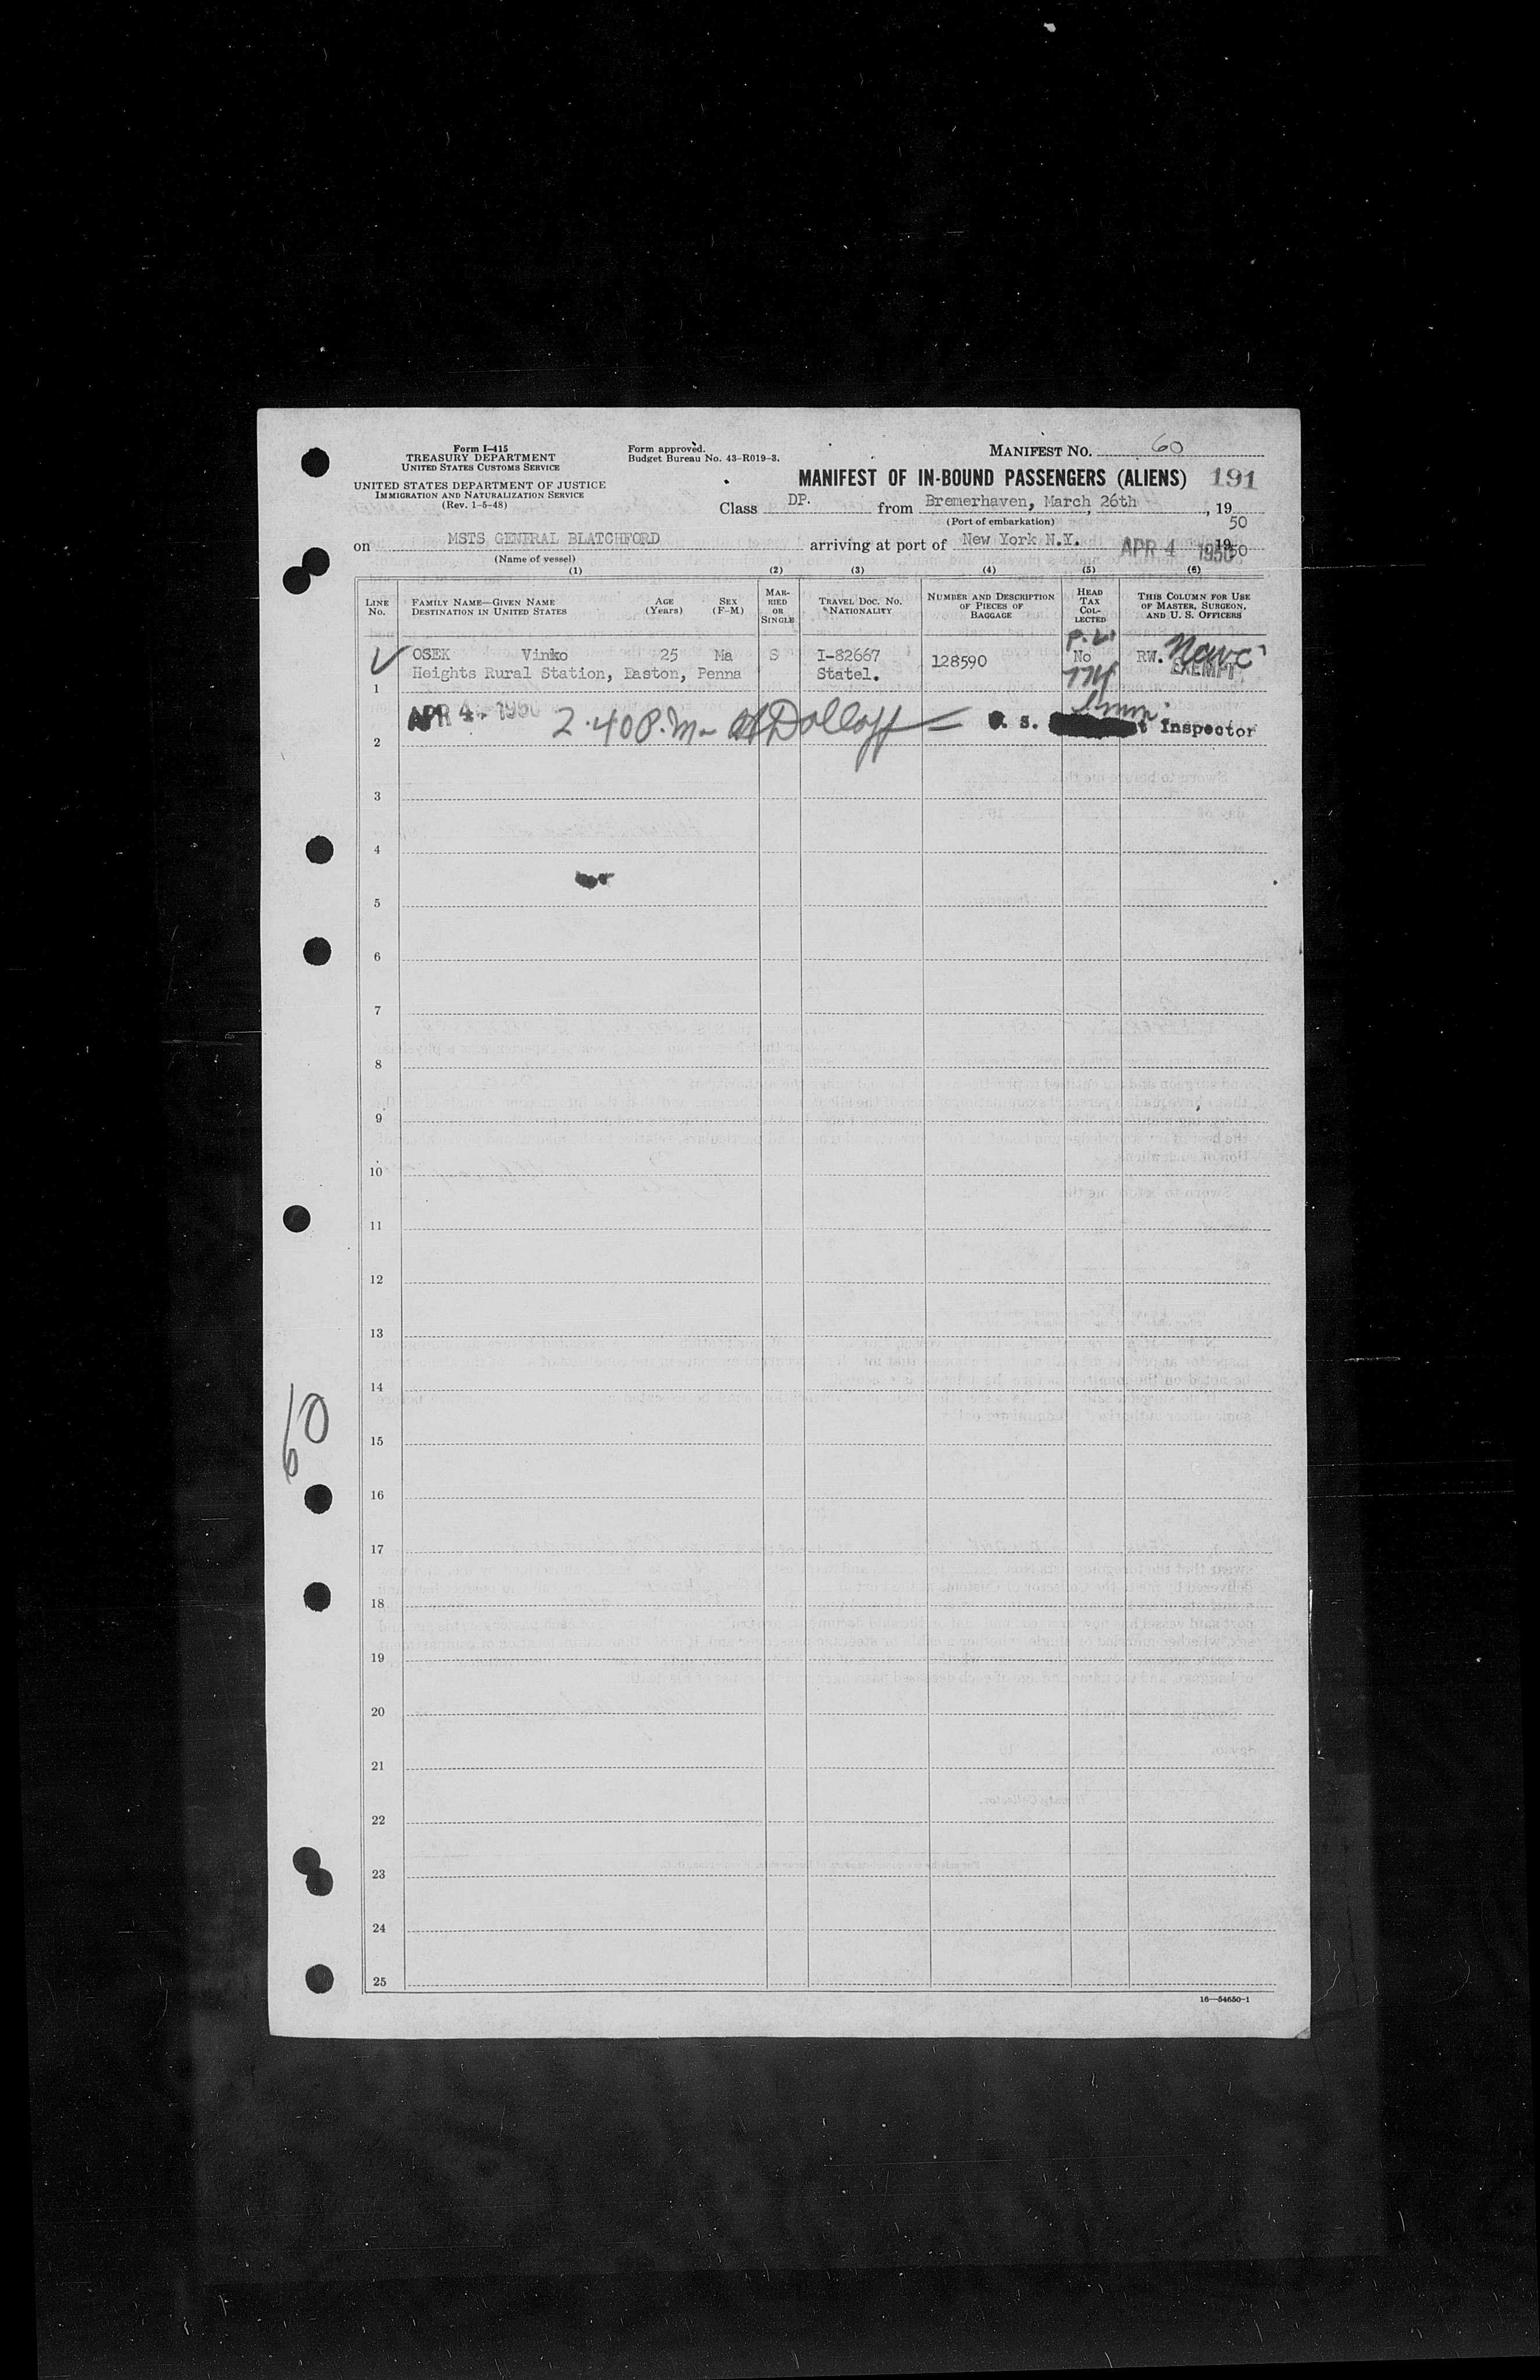 Form I-415
TREASURY DEPARTMENT
UNITED STATES CUSTOMS SERVICE
UNITED STATES DEPARTMENT OF JUSTICE
IMMIGRATION AND NATURALIZATION SERVICE
(Rev. 1-5-48)
Form approved.
Budget Bureau No. 43-R019-3.
MANIFEST NO. 60
MANIFEST OF IN-BOUND PASSENGERS (ALIENS) 191
Class DP. from Bremerhaven, March 26th, 19 50
(Port of embarkation)
on MSTS GENERAL BLATCHFORD arriving at port of New York N.Y. APR 4 1950 , 19 50
(Name of vessel)
(1) (2) (3) (4) (5) (6)
LINE NO. FAMILY NAME—GIVEN NAME DESTINATION IN UNITED STATES AGE (Years) SEX (F-M) MARRIED OR SINGLE TRAVEL DOC. NO. NATIONALITY NUMBER AND DESCRIPTION OF PIECES OF BAGGAGE HEAD TAX COLLECTED THIS COLUMN FOR USE OF MASTER, SURGEON, AND U. S. OFFICERS
OSEK Vinko 25 Ma S I-82667 128590 No RW. EXEMPT
Heights Rural Station, Easton, Penna Statel.
1
APR 4 - 1950 2.40 P.M. Dolloff U. S. Imm. Inspector
2
3
4
5
6
7
8
9
10
11
12
13
14
15
16
17
18
19
20
21
22
23
24
25
60
16—54650-1